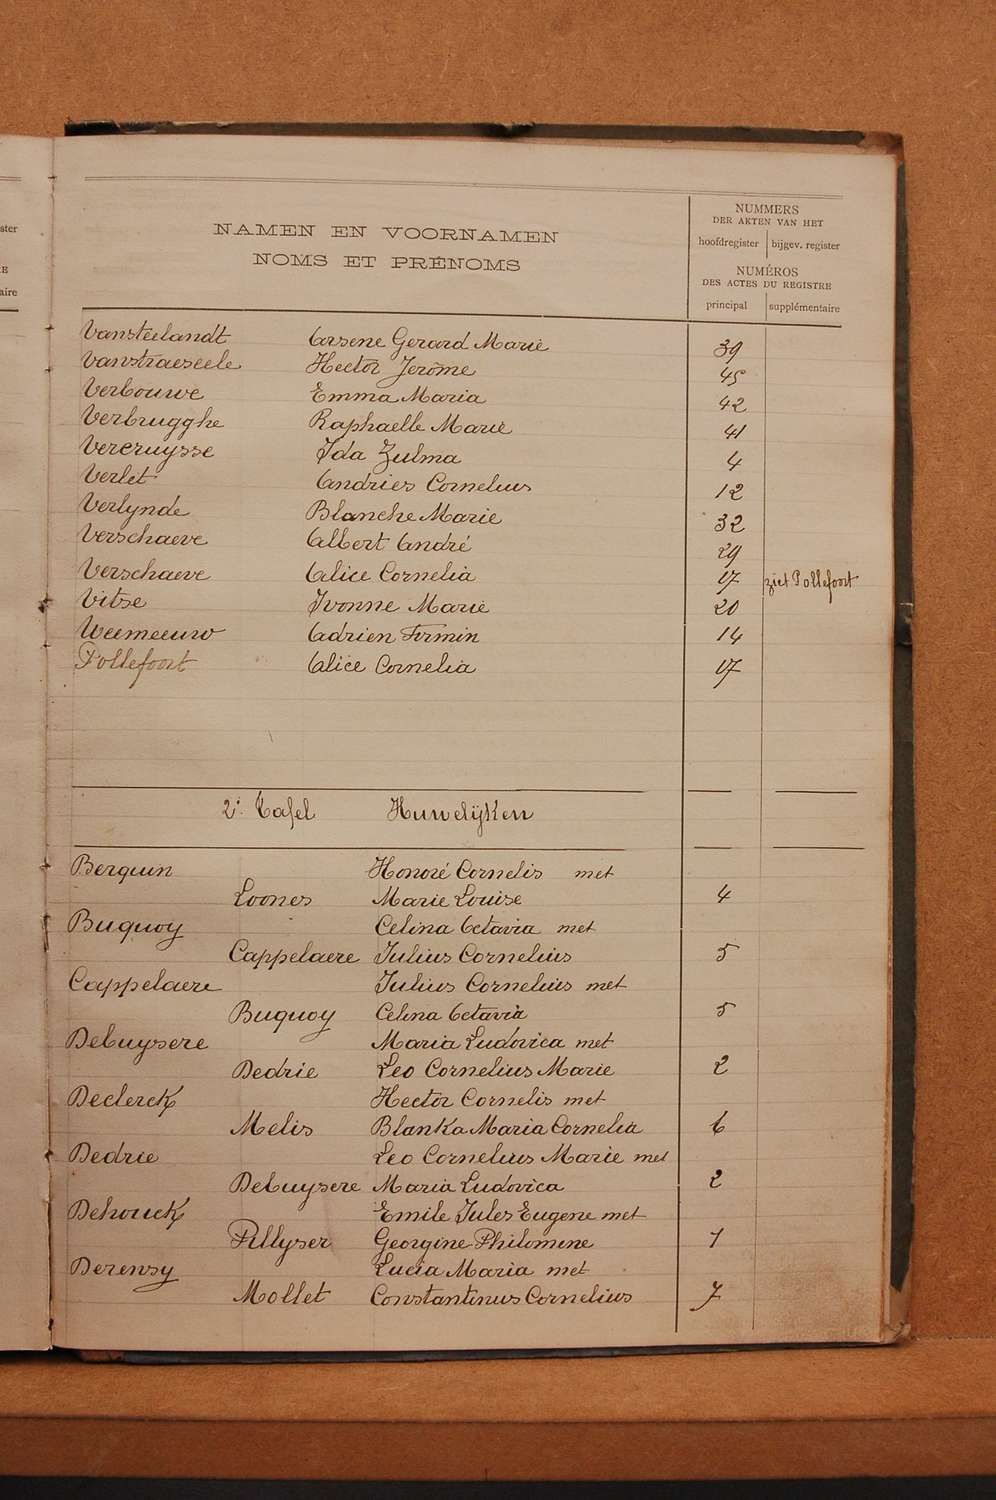 ster
RE
aire
NAMEN EN VOORNAMEN
NOMS ET PRÉNOMS
NUMMERS
DER AKTEN VAN HET
hoofdregister bijgev. register
NUMÉROS
DES ACTES DU REGISTRE
principal supplémentaire
Vansteelandt Arsene Gerard Marie 39
Vanstraeseele Hector Jerôme 45
Verbouwe Emma Maria 42
Verbrugghe Raphaelle Marie 41
Vercruysse Ida Zulma 4
Verlet Andries Cornelius 12
Verlynde Blanche Marie 32
Verschaeve Albert André 29
Verschaeve Alice Cornelia 17 ziet Pollefoort
Vitse Ivonne Marie 20
Weemeeuw Adrien Firmin 14
Pollefoort Alice Cornelia 17
2e. Tafel Huwelijken
Berquin Honoré Cornelis met
Loones Marie Louise 4
Buquoy Celina Octavia met
Cappelaere Julius Cornelius 5
Cappelaere Julius Cornelius met
Buquoy Celina Octavia 5
Debuysere Maria Ludovica met
Dedrie Leo Cornelius Marie 2
Declerck Hector Cornelis met
Melis Blanka Maria Cornelia 6
Dedrie Leo Cornelius Marie met
Debuysere Maria Ludovica 2
Dehouck Emile Jules Eugene met
Pillyser Georgine Philomene 1
Derensy Lucia Maria met
Mollet Constantinus Cornelius 7